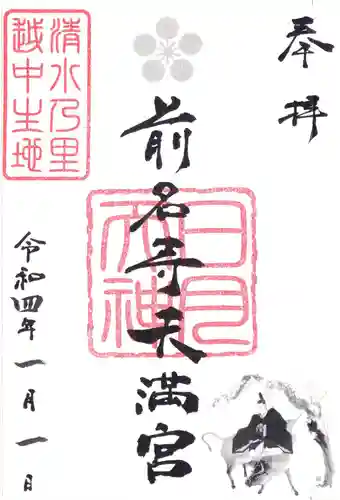 奉拝
前名寺天満宮
日月天神
清水乃里
越中生地
令和四年一月一日